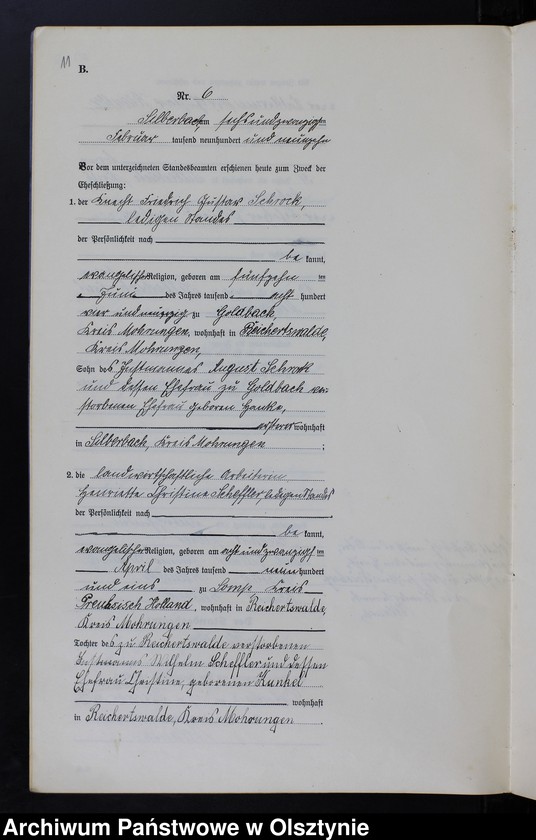 11
B.
Nr. 6
Silberbach, am sechsundzwanzigsten
Februar tausend neunhundert und neunzehn
Vor dem unterzeichneten Standesbeamten erschienen heute zum Zweck der
Eheschließung:
1. der Knecht Friedrich Gustav Schrock,
ledigen Standes
der Persönlichkeit nach
be kannt,
evangelischer Religion, geboren am fünfzehn ten
Juni des Jahres tausend acht hundert
vier und zu Goldbach,
Kreis Mohrungen, wohnhaft in Reichertswalde,
Kreis Mohrungen,
Sohn des Instmannes August Schrock
und dessen Ehefrau zu Goldbach ver-
storbenen Ehefrau geborenen
ersterer wohnhaft
in Silberbach, Kreis Mohrungen ;
2. die landwirtschaftliche Arbeiterin
Henriette Christine Scheffler, ledigen Standes
der Persönlichkeit nach
be kannt,
evangelischer Religion, geboren am acht und zwanzigsten
April des Jahres tausend neun hundert
und eins zu Komp Kreis
Preußisch Holland, wohnhaft in Reichertswalde,
Kreis Mohrungen
Tochter des zu Reichertswalde verstorbenen
Instmanns Wilhelm Scheffler und dessen
Ehefrau Christine, geborenen Kunkel
wohnhaft
in Reichertswalde, Kreis Mohrungen .
Archiwum Państwowe w Olsztynie